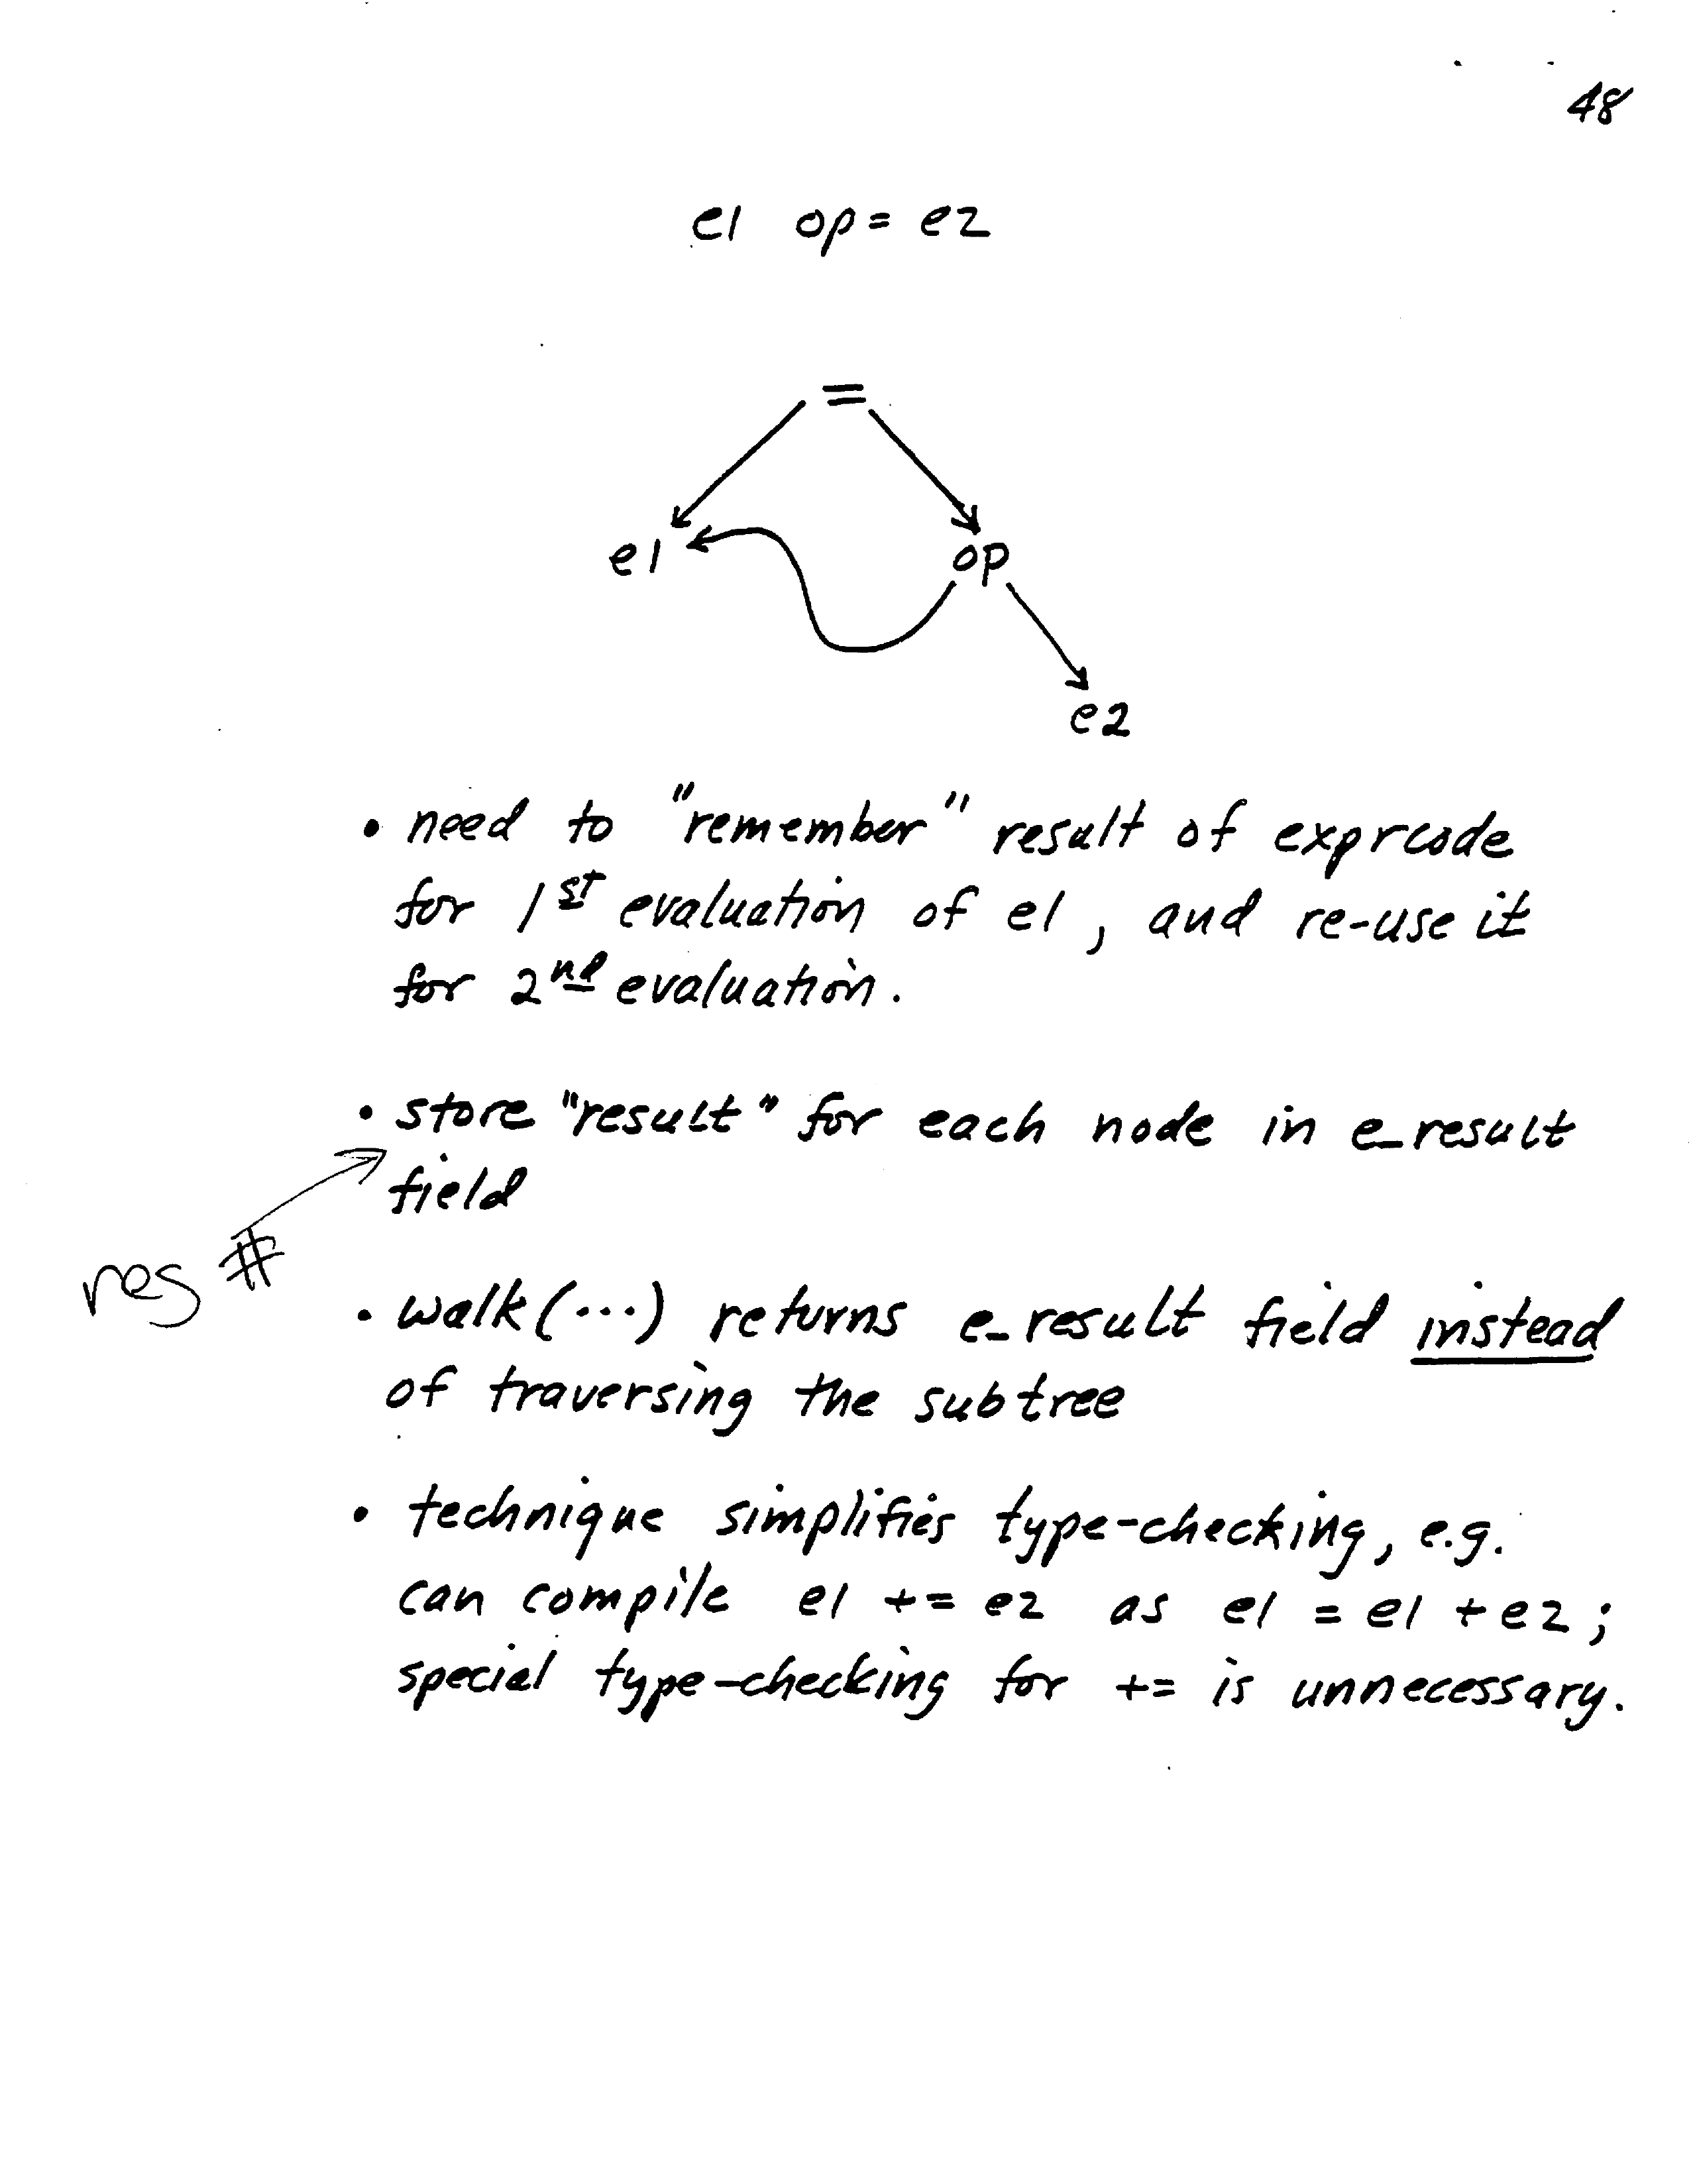 48
e1 op= e2
=
e1 op
e2
• need to "remember" result of exprcode
for 1st evaluation of e1, and re-use it
for 2nd evaluation.
• store "result" for each node in e_result
field
res #
• walk(...) returns e_result field instead
of traversing the subtree
• technique simplifies type-checking, e.g.
can compile e1 += e2 as e1 = e1 + e2;
special type-checking for += is unnecessary.